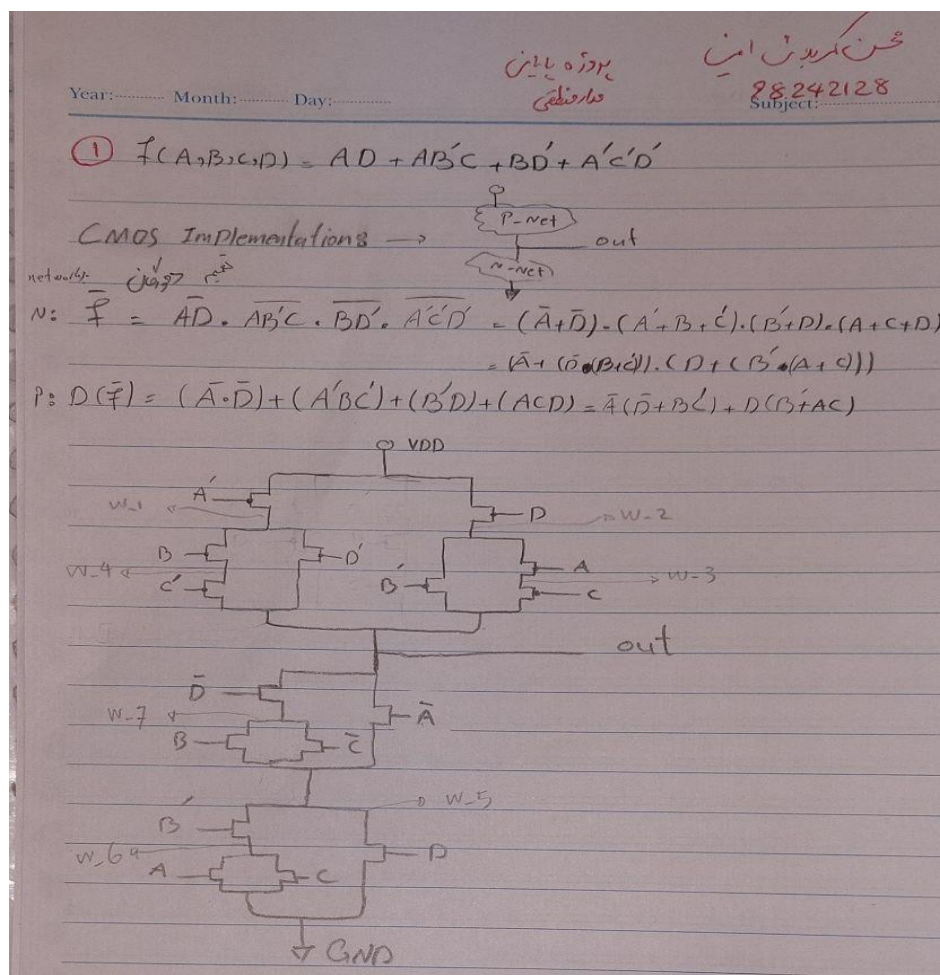 محسن کربلائی امینی
پروژه پایانی
مدار منطقی
98242128
Year: Month: Day: Subject:
1 f(A,B,C,D) = AD + AB'C + BD' + A'C'D'
P-Net
CMOS Implementations → out
N-Net
networks
N: f̅ = A̅D̅ . A̅B̅'̅C̅ . B̅D̅'̅ . A̅'̅C̅'̅D̅'̅ = (A̅+D̅).(A'+B+C').(B'+D).(A+C+D)
= (A̅+(D̅.(B+C'))).(D+(B'.(A+C)))
P: D(f̅) = (A̅.D̅)+(A'BC')+(B'D)+(ACD) = A̅(D̅+BC')+D(B'+AC)
VDD
A' D
W_1 W_2
B D' A
W_4 B' W_3
C' C
out
D̅
W_7 A̅
B C̅
W_5
B'
W_6 D
A C
GND